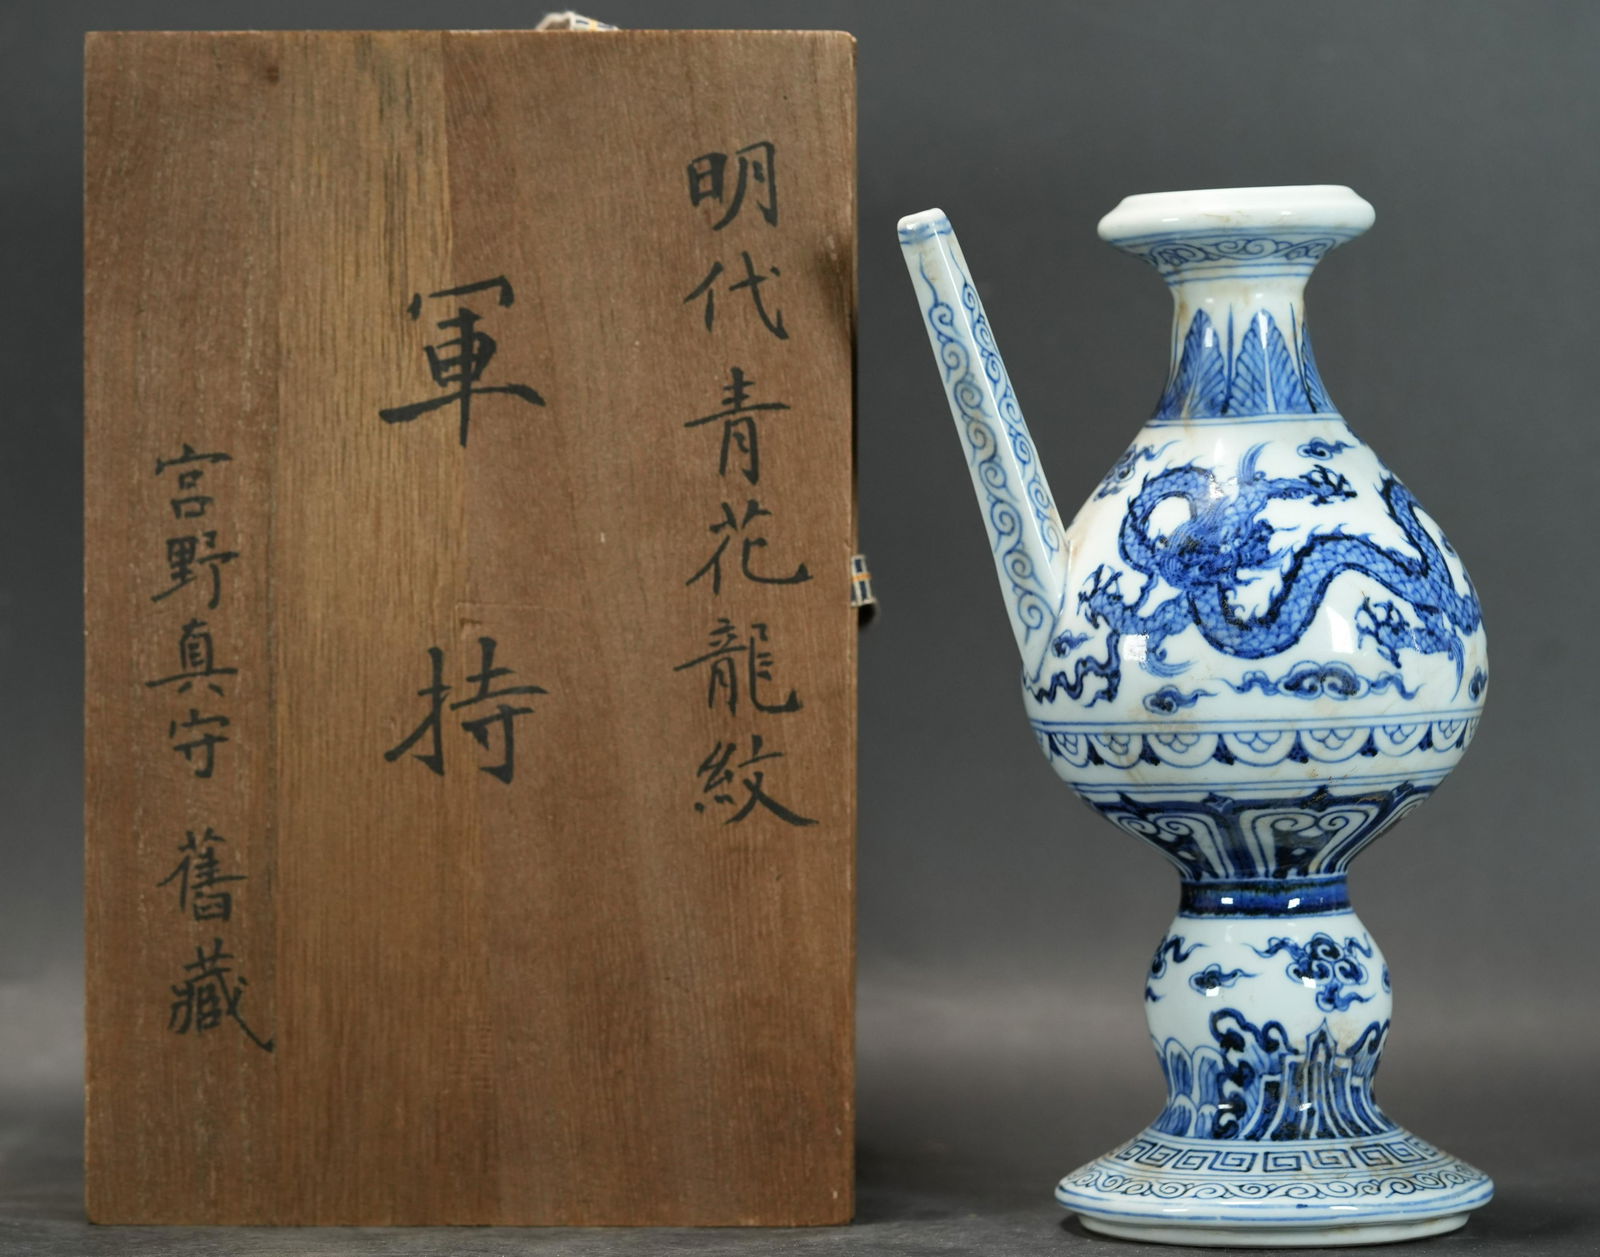 明代青花龍紋
軍持
宮野真守舊藏